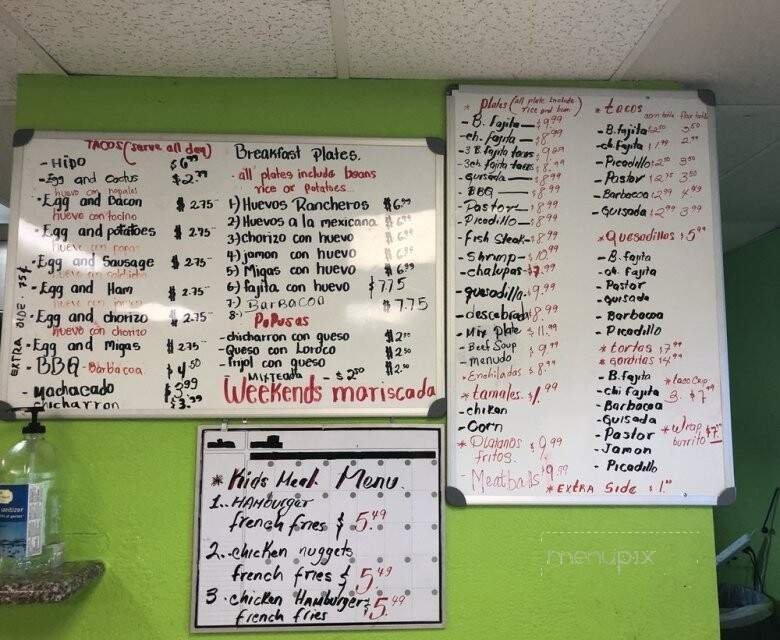 TACOS (serve all day)
- Hipo $6.99
- Egg and Cactus $2.99
huevo con nopales
- Egg and Bacon $2.75
huevo con tocino
- Egg and potatoes $2.75
huevo con papas
- Egg and Sausage $2.75
- Egg and Ham $2.75
huevo con jamon
- Egg and chorizo $2.75
huevo con chorizo
- Egg and Migas $2.75
- BBQ - Barbacoa $4.50
- Machacado $3.99
chicharron $3.99
EXTRA SIDE . 75¢
Breakfast Plates.
. all plates include beans
rice or potatoes..
1-) Huevos Rancheros $6.99
2-) Huevos a la mexicana $6.99
3-) chorizo con huevo $6.99
4-) jamon con huevo $6.99
5-) Migas con huevo $6.99
6-) fajita con huevo $7.75
7-) Barbacoa $7.75
8-)
Pupusas
- chicharron con queso
- Queso con Loroco $2.50
- frijol con queso $2.50
Mixteada - $2.50
Weekends mariscada
* Kids Meal Menu.
1.. HAmburger
french fries $5.49
2.. chicken nuggets
french fries $5.49
3. chicken Hamburger $5.49
french fries
* Plates (all plate include
rice and bean)
- B. fajita — $9.99
- ch. fajita — $8.99
- 3 B. fajita tacos
- 3 ch. fajita tacos
- guisada — $8.99
- BBQ — $8.99
- Pastor — $8.99
- Picadillo — $8.99
- fish steak - $8.99
- shrimp — $10.99
- chalupas - $7.99
- quesadilla - $9.99
- desebrada $8.99
- Mix Plate $11.99
- Beef Soup $9.99
- menudo
- Enchiladas $8.99
* tamales. $1.99
- chiken
- Corn
* Platanos $9.99
fritos.
- Meatballs $9.99
* tacos
corn tortilla flour tortilla
- B. fajita $2.50 3.50
- ch. fajita $1.99 2.99
- Picadillo $2.50 3.50
- Pastor $2.50 3.50
- Barbacoa $2.99 4.49
- Guisada $2.99 3.99
* Quesadillas $5.99
- B. fajita
- ch. fajita
- Pastor
- guisada
- Barbacoa
- Picadillo
* tortas $7.99
* Gorditas $4.99
- B. fajita
- chi fajita
- Barbacoa
- Guisada
- Pastor
- Jamon
- Picadillo
* taco crisp
3. $7.99
* Wrap
burrito $7.99
* EXTRA Side $1.00
menupix